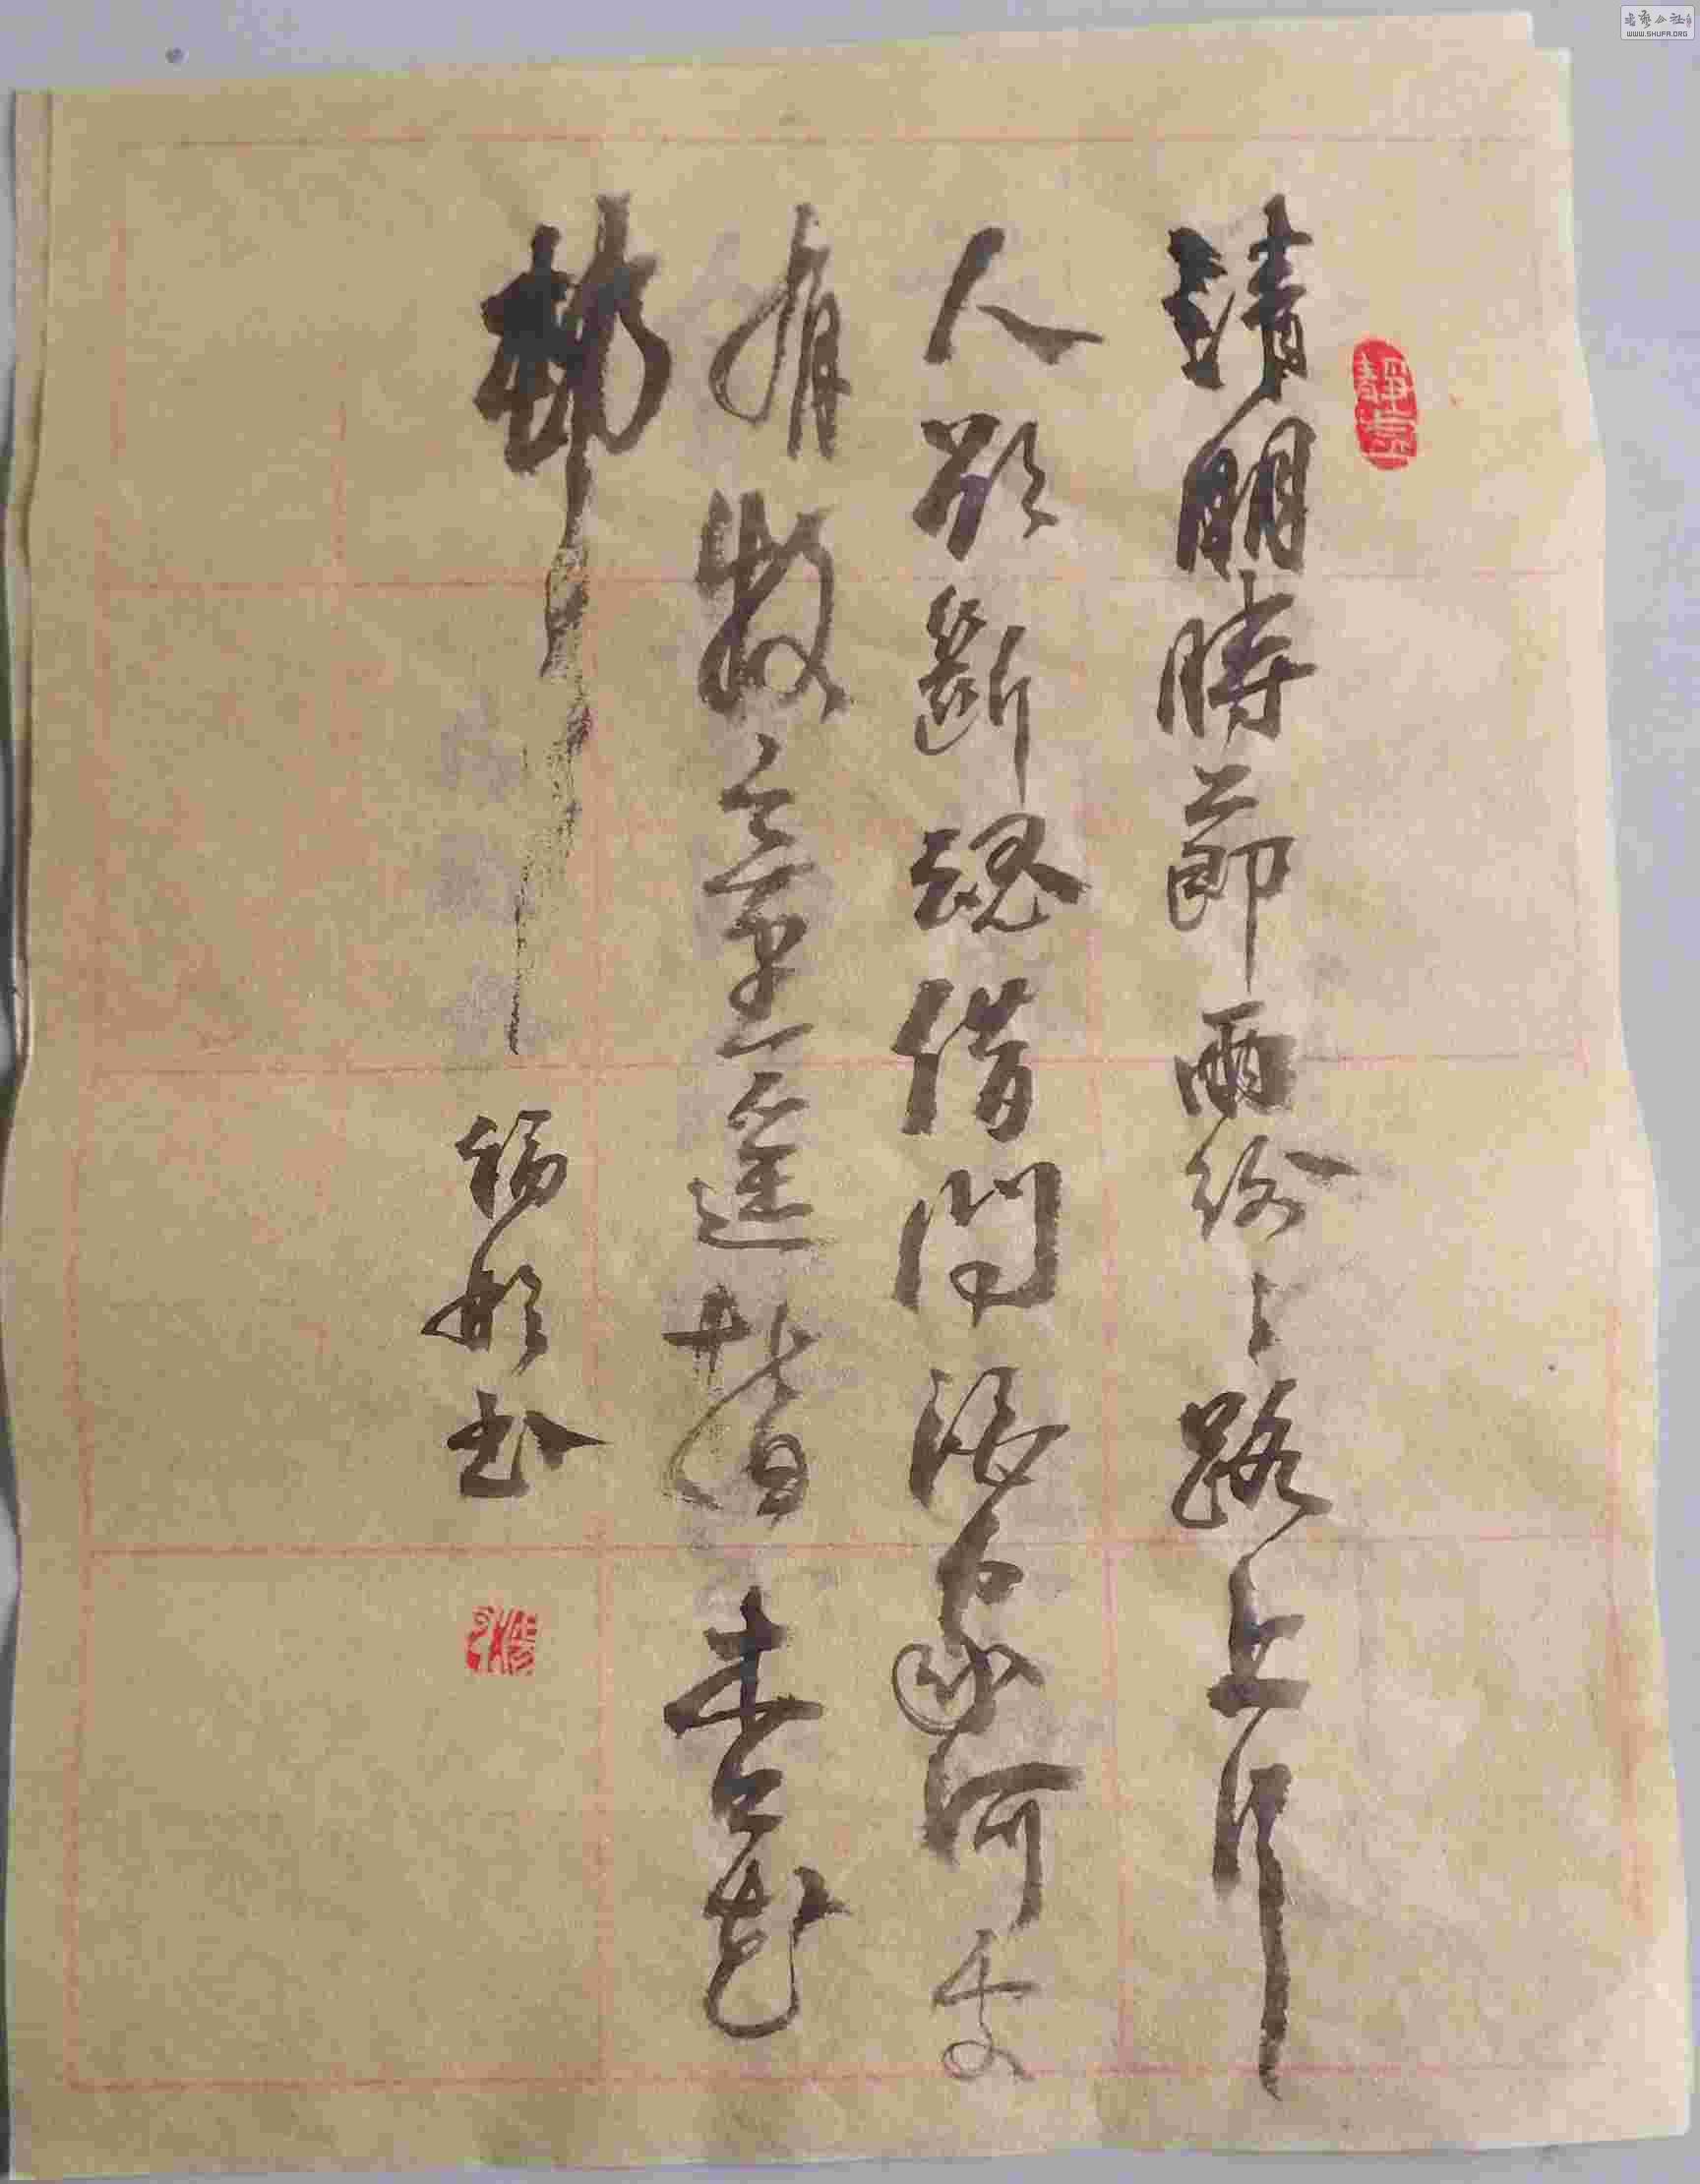 清明時節雨紛〻路上行
人欲斷魂借問酒家何处
有牧童遥指杏花
邨
福 书
WWW.SHUFA.ORG